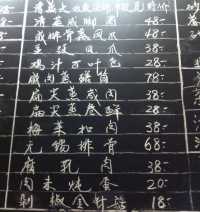 清蒸咸腳圈 48-
咸排骨蒸鳳爪 38-
豆豉鳳爪 38-
鸡汁百叶包 28-
咸肉蒸鳝筒 78-
扁尖蒸咸肉 38-
扁尖蒸卷鲜 28-
梅菜扣肉 38-
无锡排骨 68-
腐乳肉 38-
肉末炖蛋 20-
剁椒金针菇 18-